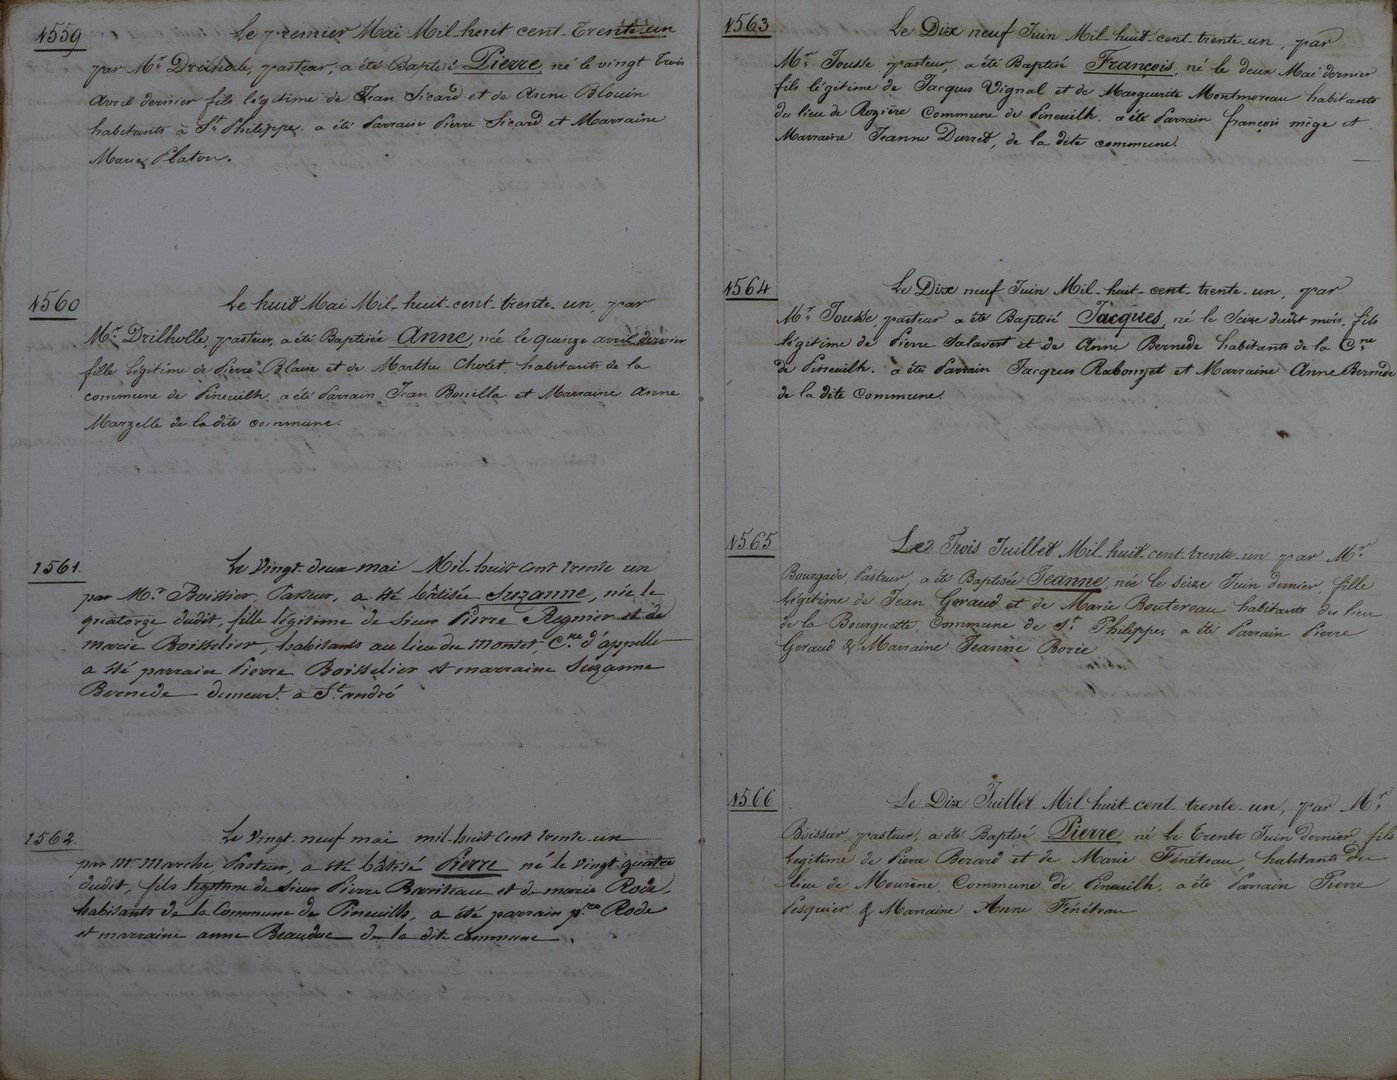 1559
Le premier Mai Mil-huit cent-Trente-un
par Mr Drilholle, pasteur, a été Baptisé Pierre, né le vingt trois
Avril dernier fils légitime de Jean Sicard et de Anne Blouin
habitants à St Philippe. a été Parrain Pierre Sicard et Marraine
Marie Platon.
1560
Le huit Mai Mil-huit-cent-trente-un, par
Mr Drilholle, pasteur, a été Baptisée Anne, née le quinze avril dernier
fille légitime de Pierre Blaise et de Marthe Cholet habitants de la
commune de Pineuilh, a été Parrain Jean Bouilla et Marraine Anne
Marzelle de la dite commune.
1561.
Le Vingt-deux mai Mil-huit cent trente un
par Mr Boissier, Pasteur, a été bâtisée Suzanne, née le
quatorze dudit, fille légitime de Sieur Pierre Reynier et de
marie Boisselier, habitants au lieu du montet, Cne d'appelle
a été parrain Pierre Boisselier et marraine Suzanne
Bernede demeurt. a St. andré
1562.
Le Vingt-neuf mai mil-huit cent trente-un
par mr marche Pasteur, a été bâtisé Pierre né le vingt-quatre
dudit, fils legitime de Sieur Pierre Barriteau et de marie Rode,
habitants de la Commune de Pineuilh, a été parrain p.re Rode
et marraine anne Beauduc de la dite commune.
1563
Le Dix neuf Juin Mil-huit-cent-trente-un, par
Mr Jousse, pasteur, a été Baptisé François, né le deux Mai dernier
fils légitime de Jacques Vignal et de Marguerite Montmoreau habitants
du lieu de Rozière Commune de Pineuilh. a été Parrain françois mège et
Marraine Jeanne Durret, de la dite commune.
1564
Le Dix neuf Juin Mil-huit-cent-trente-un, par
Mr Jousse, pasteur a été Baptisé Jacques, né le Seize dudit mois, fils
légitime de Pierre Salavert et de Anne Bernède habitants de la Cne
de Pineuilh. a été Parrain Jacques Rabouyet et Marraine Anne Bernède
de la dite Commune.
1565
Le Trois Juillet Mil-huit-cent-trente-un par Mr
Bourgade, Pasteur, a été Baptisée Jeanne, née le Seize Juin dernier fille
légitime de Jean Geraud et de Marie Boutereau habitants du lieu
de la Bourguette, Commune de St. Philippe, a été Parrain Pierre
Geraud & Marraine Jeanne Borie
1566
Le Dix Juillet Mil-huit-cent-trente-un, par Mr
Boissier, pasteur, a été Baptisé Pierre, né le Trente Juin dernier, fils
légitime de Pierre Berard et de Marie Fénéteau habitants du
lieu de Mourène, Commune de Pineuilh, a été Parrain Pierre
Pesquier & Marraine Anne Fénéteau